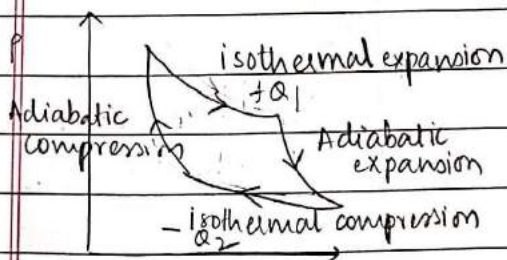 P
isothermal expansion
+Q1
Adiabatic
compression
Adiabatic
expansion
- isothermal compression
Q2